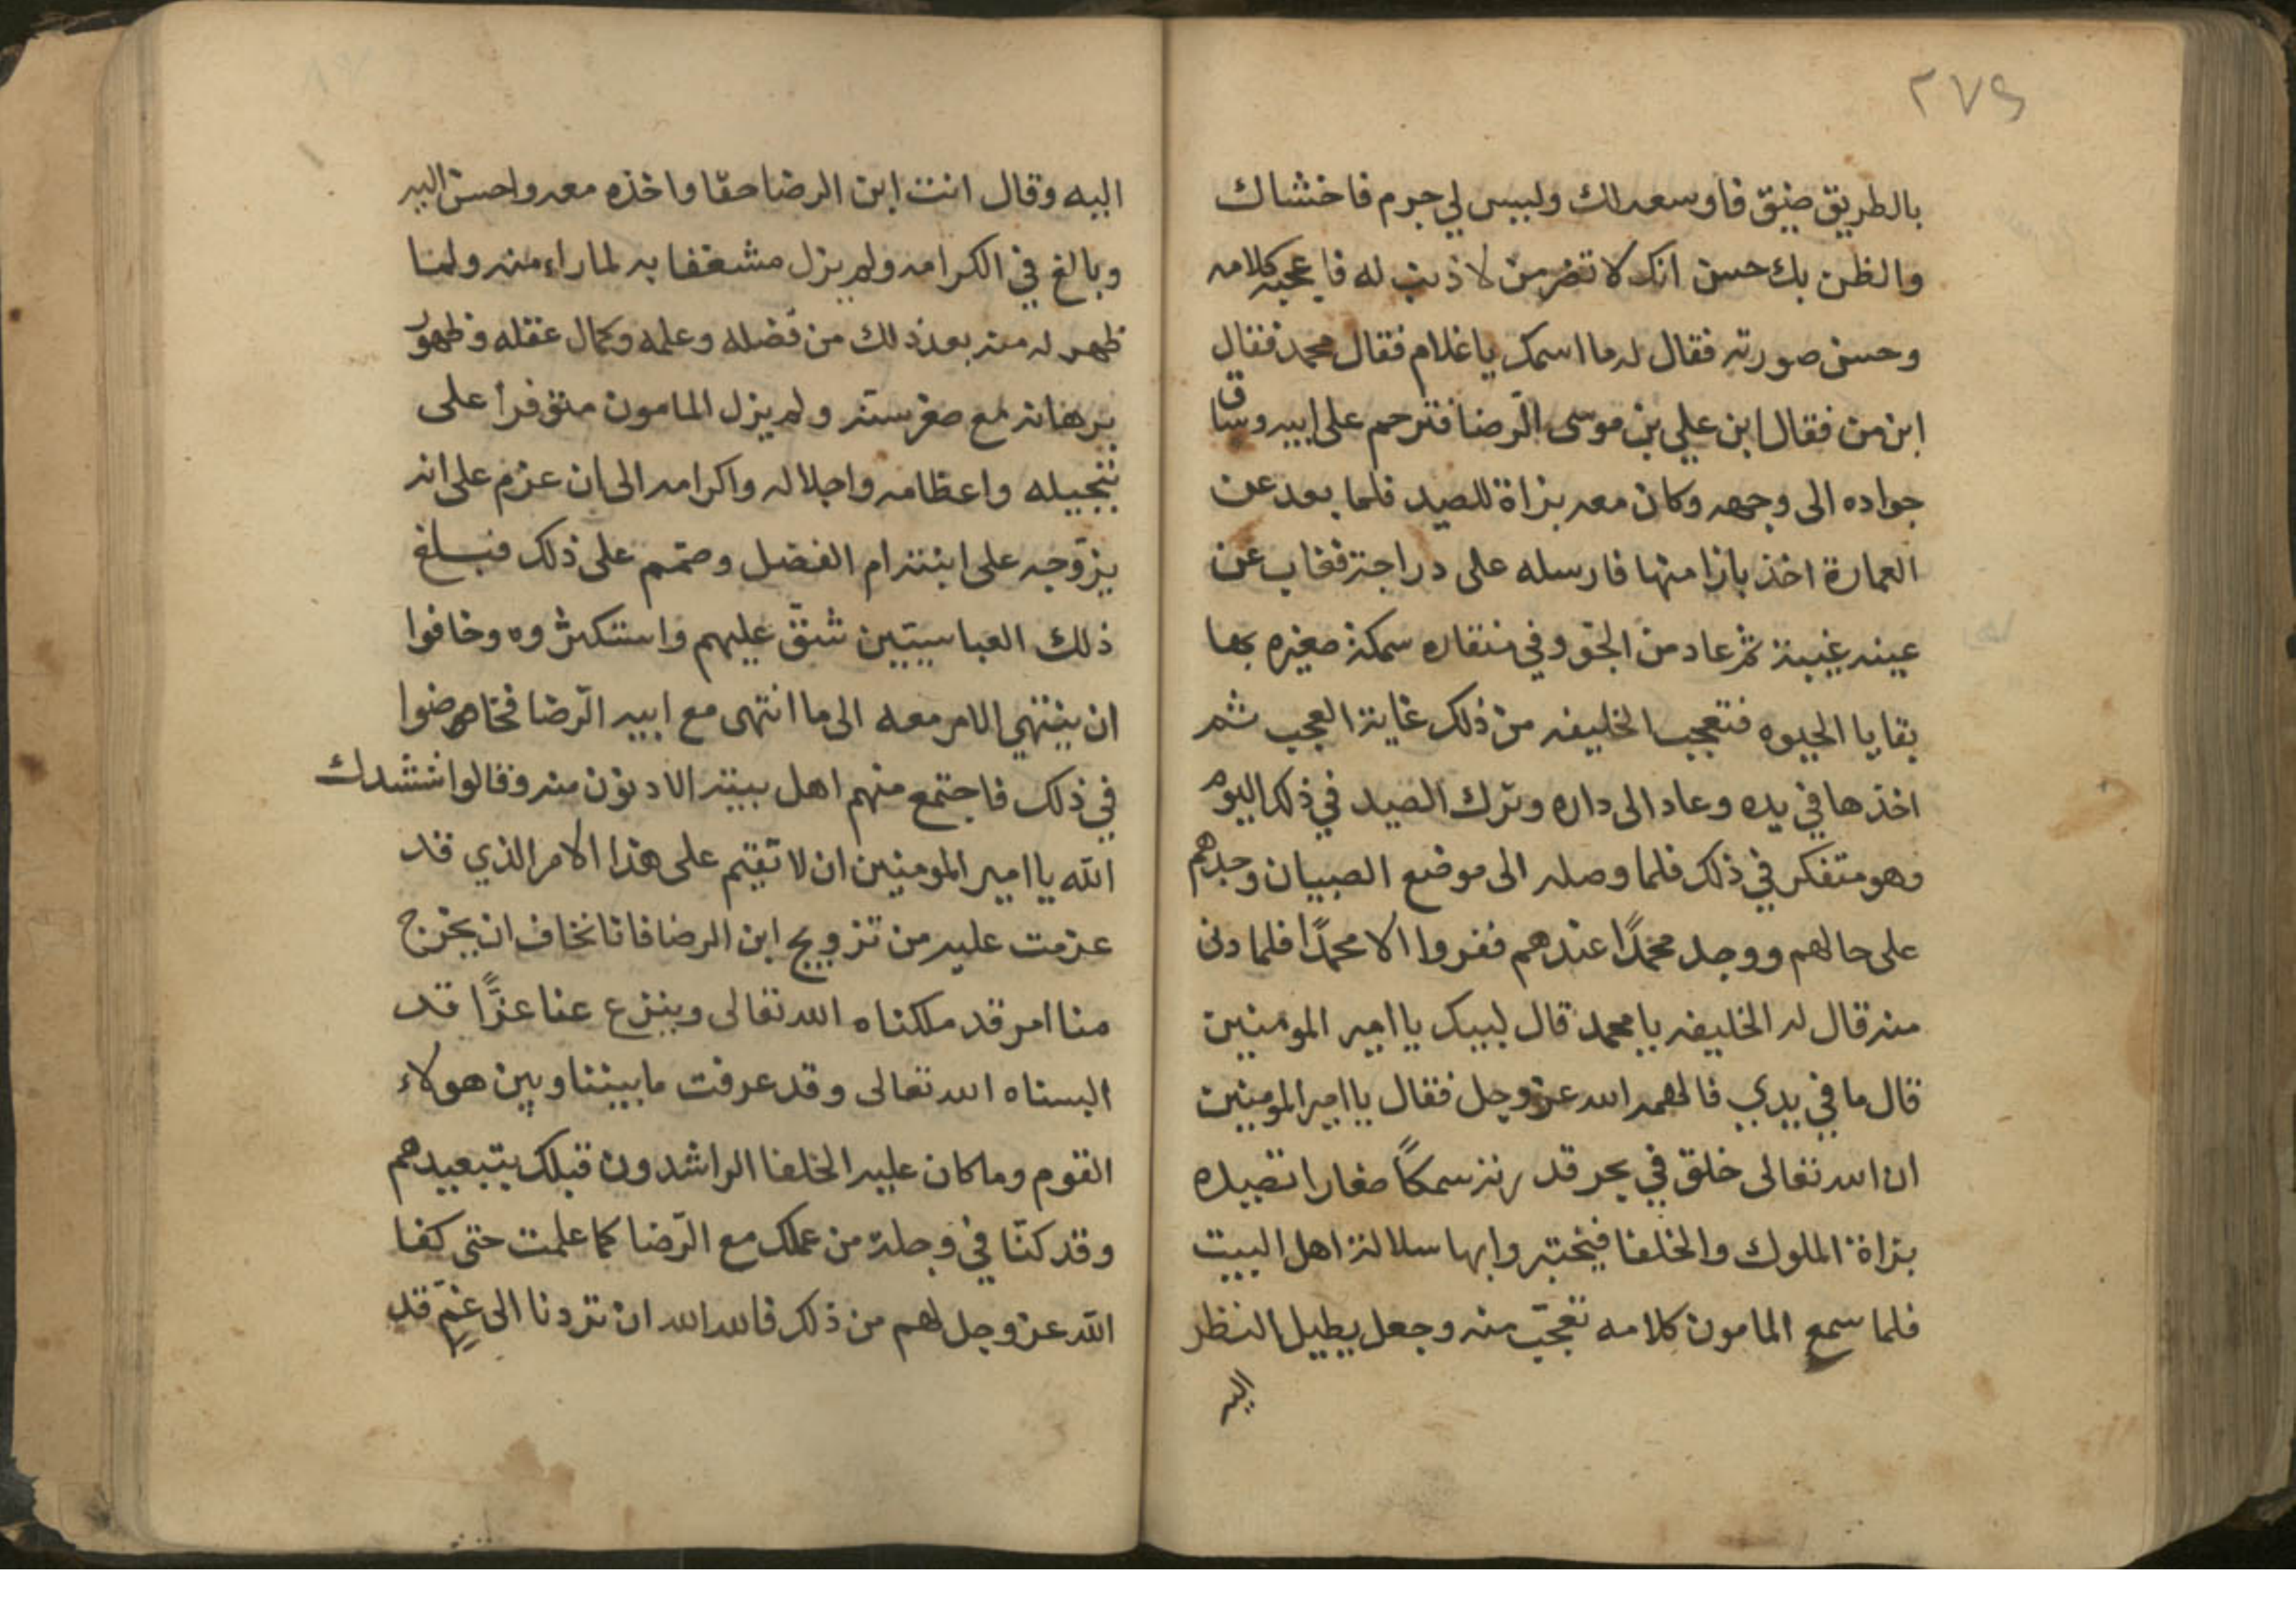 ٢٧٩
بالطريق ضيق فاوسعه لك وليس لي جرم فاخشاك
والظن بك حسن انك لا تضر من لا ذنب له فاعجبه كلامه
وحسن صورته فقال له ما اسمك يا غلام فقال محمد فقال
ابن من فقال ابن علي بن موسى الرّضا فترحم على ابيه وساق
جواده الى وجهه وكان معه بزاة للصيد فلما بعد عن
العمارة اخذ بازا منها فارسله على دراجة فغاب عن
عينه غيبة ثم عاد من الجو وفي منقاره سمكة صغيره بها
بقايا الحيوه فتعجب الخليفه من ذلك غاية العجب ثم
اخذها في يده وعاد الى داره وترك الصيد في ذلك اليوم
وهو متفكر في ذلك فلما وصله الى موضع الصبيان وجدهم
على حالهم ووجد محمدًا عندهم ففروا الا محمدًا فلما دنى
منه قال له الخليفه يا محمد قال لبيك يا امير المومنين
قال ما في يدي فالهمه الله عز وجل فقال يا امير المومنين
ان الله تعالى خلق في بحر قدرته سمكًا صغارا تصيده
بزاة الملوك والخلفا فيختبروا بها سلالة اهل البيت
فلما سمع المامون كلامه تعجّب منه وجعل يطيل النظر
اليه
اليه وقال انت ابن الرضا حقا واخذه معه واحسن اليه
وبالغ في اكرامه ولم يزل مشغفا به لما راء منه ولما
ظهر له منه بعد ذلك من فضله وعلمه وكمال عقله وظهور
برهانه مع صغر سنه ولم يزل المامون متوفرا على
تبجيله واعظامه واجلاله واكرامه الى ان عزم على انه
يزوّجه على ابنته ام الفضل وصمّم على ذلك فبلغ
ذلك العباسيّين شقّ عليهم واستكثروه وخافوا
ان ينتهي الامر معه الى ما انتهى مع ابيه الرّضا فخاضوا
في ذلك فاجتمع منهم اهل بيته الادنون منه وقالوا ننشدك
الله يا امير المومنين ان لا تقيم على هذا الامر الذي قد
عزمت عليه من تزويج ابن الرضا فانا نخاف ان يخرج
منا امر قد ملكناه الله تعالى وينزع عنا عزًّا قد
البسناه الله تعالى وقد عرفت ما بيننا وبين هولاء
القوم وما كان عليه الخلفا الراشدون قبلك بتبعيدهم
وقد كنّا في وجلة من عملك مع الرّضا كما علمت حتى كفا
الله عز وجل لهم من ذلك فالله الله ان تردنا الى غمّ قد